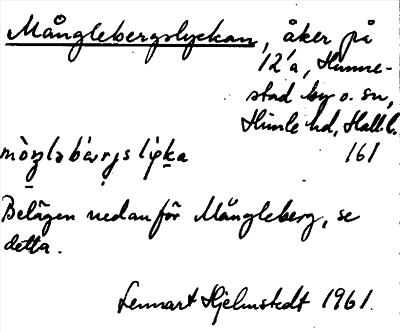 Månglebergslyckan, åker på
12'a, Hunne-
stad by o. sn,
Himle hd, Hall. l.
161
Belägen nedanför Mångleberg, se
detta.
Lennart Hjelmstedt 1961.